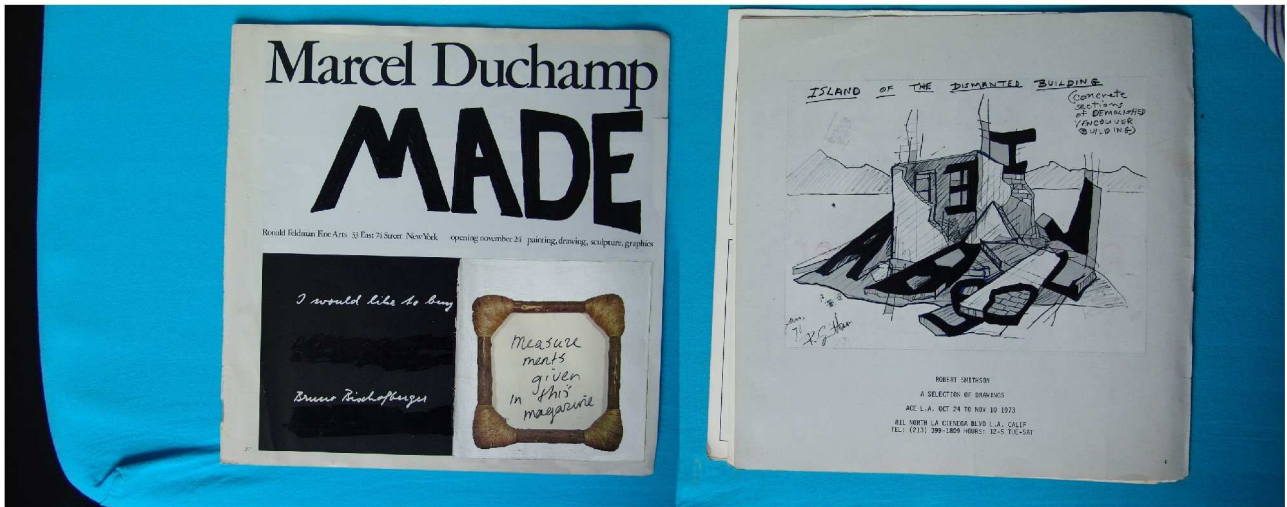 Marcel Duchamp
MADE
Ronald Feldman Fine Arts 33 East 74 Street New York opening november 24 painting, drawing, sculpture, graphics
I would like to buy
Bruno Bischofberger
measure
ments
given
in this
magazine
ISLAND OF THE DISMANTED BUILDING
(concrete
sections
of DEMOLISHED
VANCOUVER
BUILDING)
ROBERT SMITHSON
A SELECTION OF DRAWINGS
ACE L.A. OCT 24 TO NOV 10 1973
811 NORTH LA CIENEGA BLVD L.A. CALIF
TEL: (213) 399-1809 HOURS: 12-5 TUE-SAT